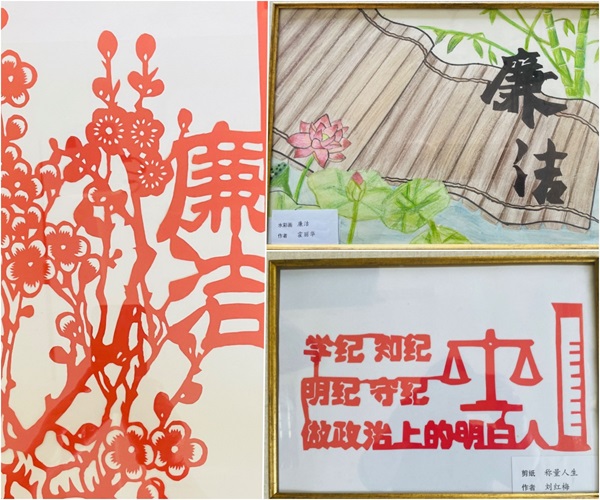 廉
洁
廉
洁
水彩画 廉洁
学纪 知纪
明纪 守纪
做政治上的明白人
剪纸 称量人生
作者 刘红梅